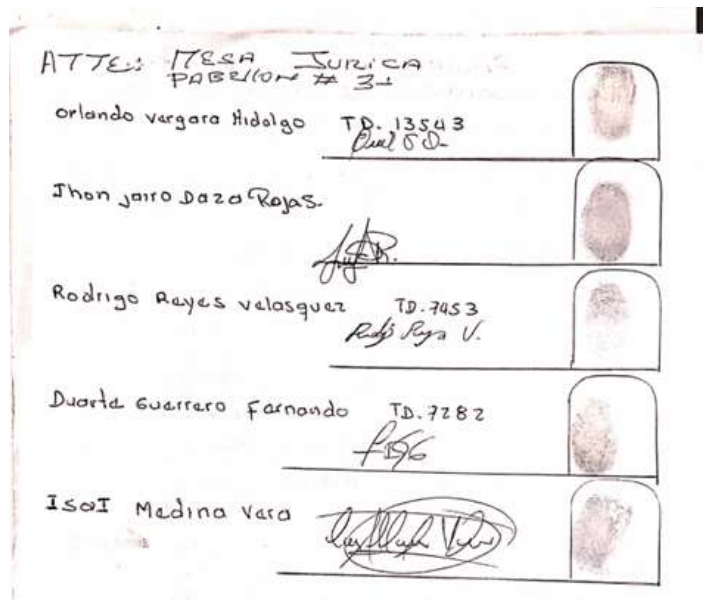 ATTE: MESA JURICA
PABELLON # 31
orlando vergara Hidalgo TD. 13543
Jhon jairo Daza Rojas.
Rodrigo Reyes velasquez TD. 7453
Rodrigo Reyes V.
Duarte Guerrero Fernando TD. 7282
IsaI Medina Vera